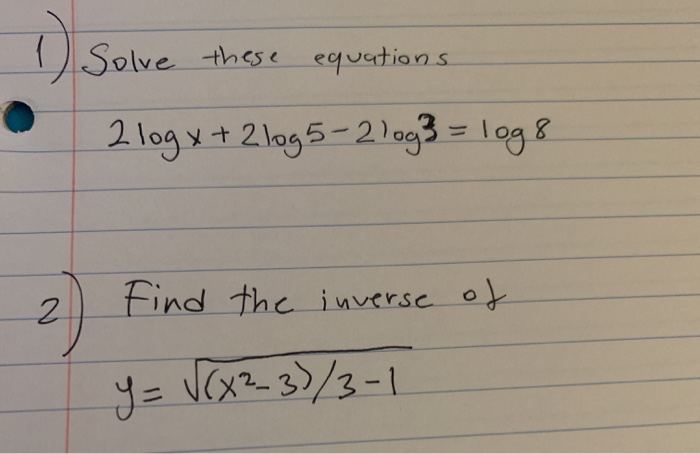 1) Solve these equations
2 log x + 2 log 5 - 2 log 3 = log 8
2) Find the inverse of
y = √((x² - 3)/3 - 1)